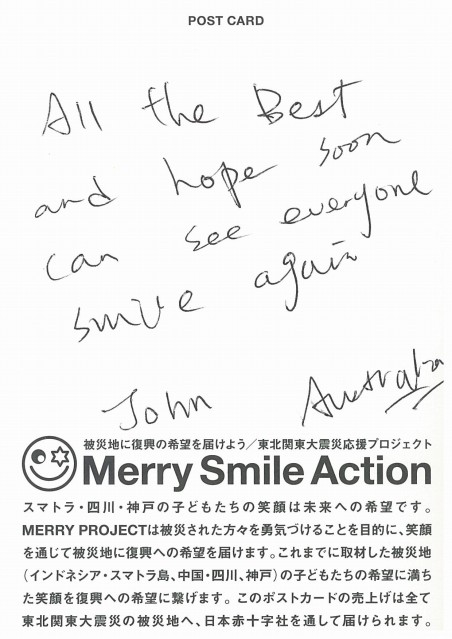 POST CARD
All the Best
and hope soon
can see everyone
smile again
John Australia
被災地に復興の希望を届けよう／東北関東大震災応援プロジェクト
Merry Smile Action
スマトラ・四川・神戸の子どもたちの笑顔は未来への希望です。
MERRY PROJECTは被災された方々を勇気づけることを目的に、笑顔
を通じて被災地に復興への希望を届けます。これまでに取材した被災地
（インドネシア・スマトラ島、中国・四川、神戸）の子どもたちの希望に満ち
た笑顔を復興への希望に繋げます。このポストカードの売上げは全て
東北関東大震災の被災地へ、日本赤十字社を通して届けられます。